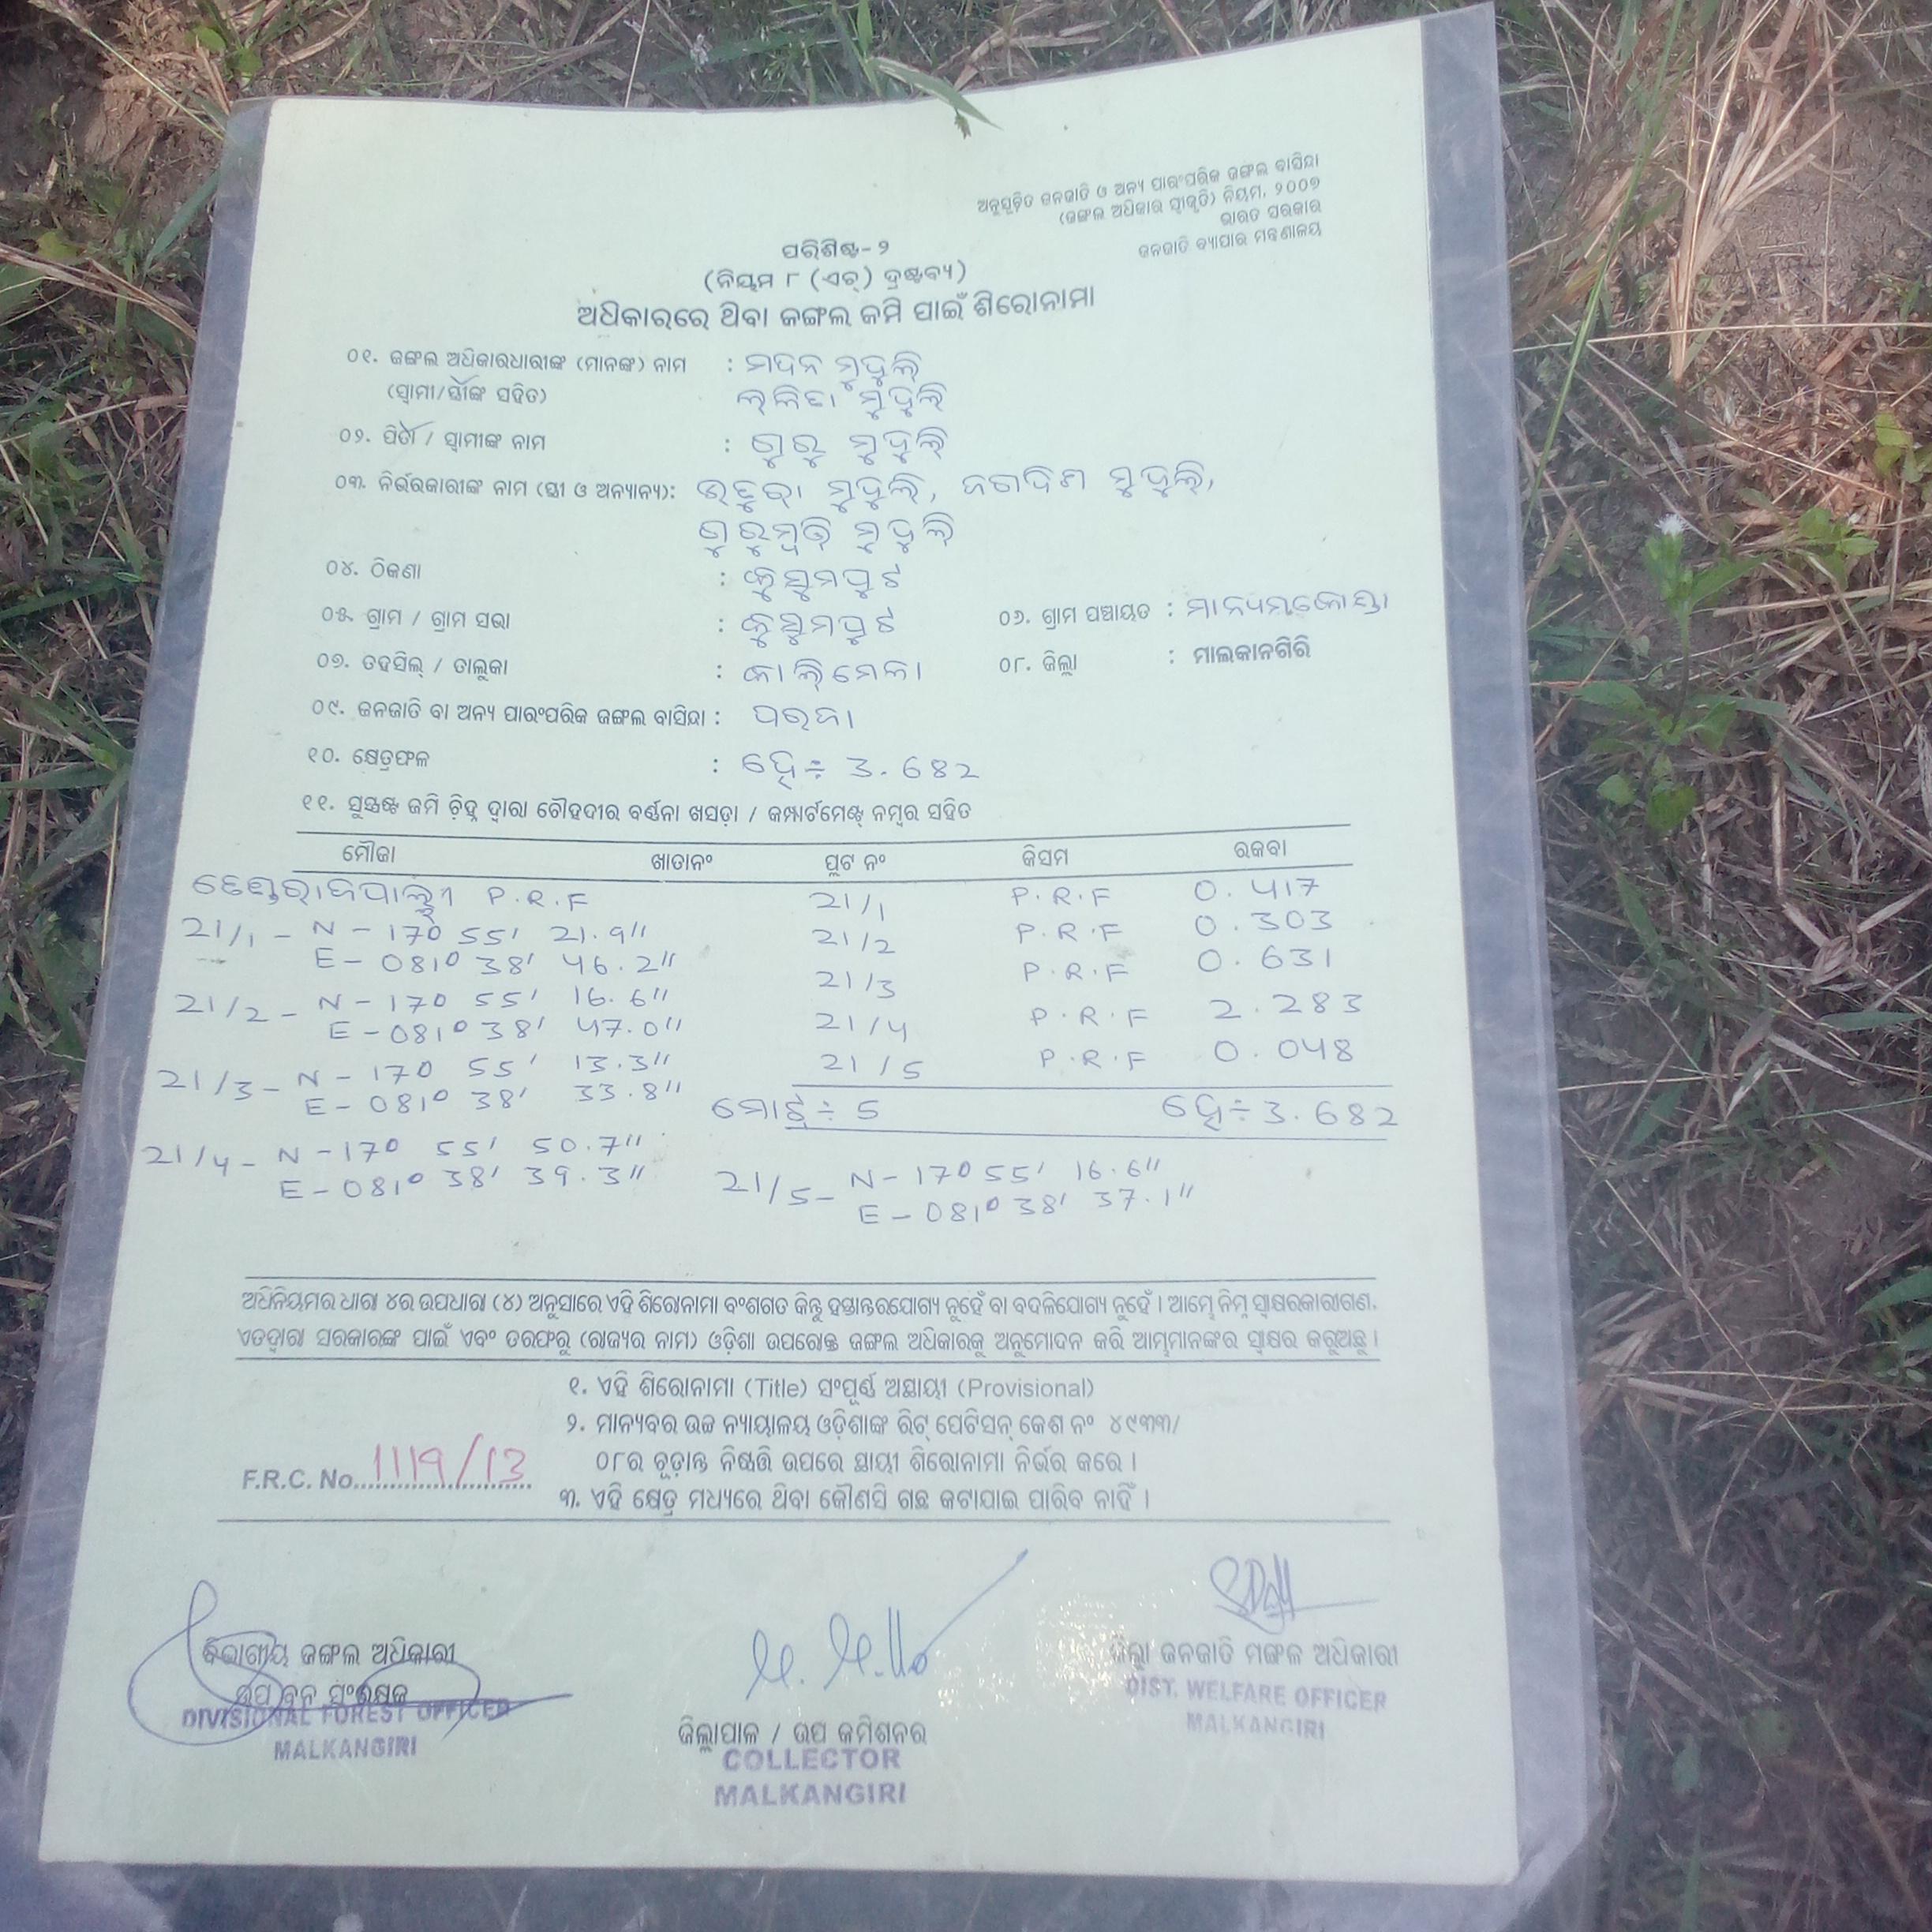 ଅନୁସୂଚିତ ଜନଜାତି ଓ ଅନ୍ୟ ପାରଂପରିକ ଜଙ୍ଗଲ ବାସିନ୍ଦା
(ଜଙ୍ଗଲ ଅଧିକାର ସ୍ୱୀକୃତି) ନିୟମ, ୨୦୦୭
ଭାରତ ସରକାର
ଜନଜାତି ବ୍ୟାପାର ମନ୍ତ୍ରଣାଳୟ
ପରିଶିଷ୍ଟ-୨
(ନିୟମ ୮ (ଏଚ୍) ଦ୍ରଷ୍ଟବ୍ୟ)
ଅଧିକାରରେ ଥିବା ଜଙ୍ଗଲ ଜମି ପାଇଁ ଶିରୋନାମା
୦୧. ଜଙ୍ଗଲ ଅଧିକାରଧାରୀଙ୍କ (ମାନଙ୍କ) ନାମ : ମଦନ ମୁଦୁଲି
(ସ୍ୱାମୀ/ସ୍ତ୍ରୀଙ୍କ ସହିତ) ଲଳିତା ମୁଦୁଲି
୦୨. ପିତା / ସ୍ୱାମୀଙ୍କ ନାମ : ଗୁରୁ ମୁଦୁଲି
୦୩. ନିର୍ଭରକାରୀଙ୍କ ନାମ (ସ୍ତ୍ରୀ ଓ ଅନ୍ୟାନ୍ୟ): ମୁଦୁଲି, ମୁଦୁଲି,
ମୁଦୁଲି
୦୪. ଠିକଣା : କୁସୁମପୁଟ
୦୫. ଗ୍ରାମ / ଗ୍ରାମ ସଭା : କୁସୁମପୁଟ ୦୬. ଗ୍ରାମ ପଞ୍ଚାୟତ : ମାନ୍ୟମକୋଣ୍ଡା
୦୭. ତହସିଲ୍ / ତାଲୁକା : କାଲିମେଳା ୦୮. ଜିଲ୍ଲା : ମାଲକାନଗିରି
୦୯. ଜନଜାତି ବା ଅନ୍ୟ ପାରଂପରିକ ଜଙ୍ଗଲ ବାସିନ୍ଦା : ପରଜା
୧୦. କ୍ଷେତ୍ରଫଳ : ହେ÷ 3.682
୧୧. ସୁସ୍ପଷ୍ଟ ଜମି ଚିହ୍ନ ଦ୍ୱାରା ଚୌହଦୀର ବର୍ଣ୍ଣନା ଖସଡ଼ା / କମ୍ପାର୍ଟମେଣ୍ଟ୍ ନମ୍ବର ସହିତ
ମୌଜା ଖାତାନଂ ପ୍ଲଟ ନଂ କିସମ ରକବା
P.R.F 21/1 P.R.F 0.417
21/1 – N – 17० 55' 21.9" 21/2 P.R.F 0.303
E – 081० 38' 46.2" 21/3 P.R.F 0.631
21/2 – N – 17० 55' 16.6" 21/4 P.R.F 2.283
E – 081० 38' 47.0" 21/5 P.R.F 0.048
21/3 – N – 17० 55' 13.3"
E – 081० 38' 33.8" ମୋଟ÷ 5 ହେ÷ 3.682
21/4 – N – 17० 55' 50.7"
E – 081० 38' 39.3"
21/5 – N – 17० 55' 16.6"
E – 081० 38' 37.1"
ଅଧିନିୟମର ଧାରା ୪ର ଉପଧାରା (୪) ଅନୁସାରେ ଏହି ଶିରୋନାମା ବଂଶଗତ କିନ୍ତୁ ହସ୍ତାନ୍ତରଯୋଗ୍ୟ ନୁହେଁ ବା ବଦଳିଯୋଗ୍ୟ ନୁହେଁ । ଆମ୍ଭେ ନିମ୍ନ ସ୍ୱାକ୍ଷରକାରୀଗଣ,
ଏତଦ୍ୱାରା ସରକାରଙ୍କ ପାଇଁ ଏବଂ ତରଫରୁ (ରାଜ୍ୟର ନାମ) ଓଡ଼ିଶା ଉପରୋକ୍ତ ଜଙ୍ଗଲ ଅଧିକାରକୁ ଅନୁମୋଦନ କରି ଆମ୍ଭମାନଙ୍କର ସ୍ୱାକ୍ଷର କରୁଅଛୁ ।
୧. ଏହି ଶିରୋନାମା (Title) ସଂପୂର୍ଣ୍ଣ ଅସ୍ଥାୟୀ (Provisional)
୨. ମାନ୍ୟବର ଉଚ୍ଚ ନ୍ୟାୟାଳୟ ଓଡ଼ିଶାଙ୍କ ରିଟ୍ ପେଟିସନ୍ କେଶ ନଂ ୪୯୩୩/
୦୮ର ଚୂଡ଼ାନ୍ତ ନିଷ୍ପତ୍ତି ଉପରେ ସ୍ଥାୟୀ ଶିରୋନାମା ନିର୍ଭର କରେ ।
F.R.C. No. 1119/13
୩. ଏହି କ୍ଷେତ୍ର ମଧ୍ୟରେ ଥିବା କୌଣସି ଗଛ କଟାଯାଇ ପାରିବ ନାହିଁ ।
ବିଭାଗୀୟ ଜଙ୍ଗଲ ଅଧିକାରୀ
ଉପ ବନ ସଂରକ୍ଷକ
DIVISIONAL FOREST OFFICER
MALKANGIRI
ଜିଲ୍ଲାପାଳ / ଉପ କମିଶନର
COLLECTOR
MALKANGIRI
ଜିଲ୍ଲା ଜନଜାତି ମଙ୍ଗଳ ଅଧିକାରୀ
DIST. WELFARE OFFICER
MALKANGIRI